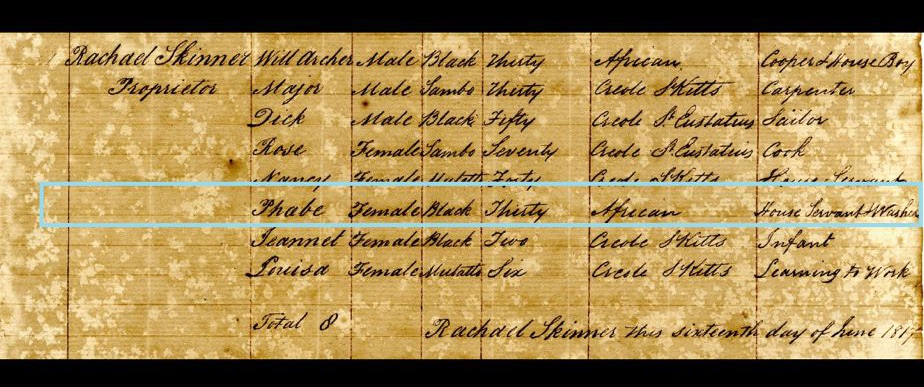 Rachael Skinner Will Archer Male Black Thirty African Cooper & House Boy
Proprietor Major Male Sambo Thirty Creole St Kitts Carpenter
Dick Male Black Fifty Creole St Eustatius Sailor
Rose Female Sambo Seventy Creole St Eustatius Cook
Nancy Female Mulatto Forty Creole St Kitts House Servant
Phabe Female Black Thirty African House Servant & Washer
Jeannet Female Black Two Creole St Kitts Infant
Louisa Female Mulatto Six Creole St Kitts Learning to Work
Total 8 Rachael Skinner this sixteenth day of June 1817